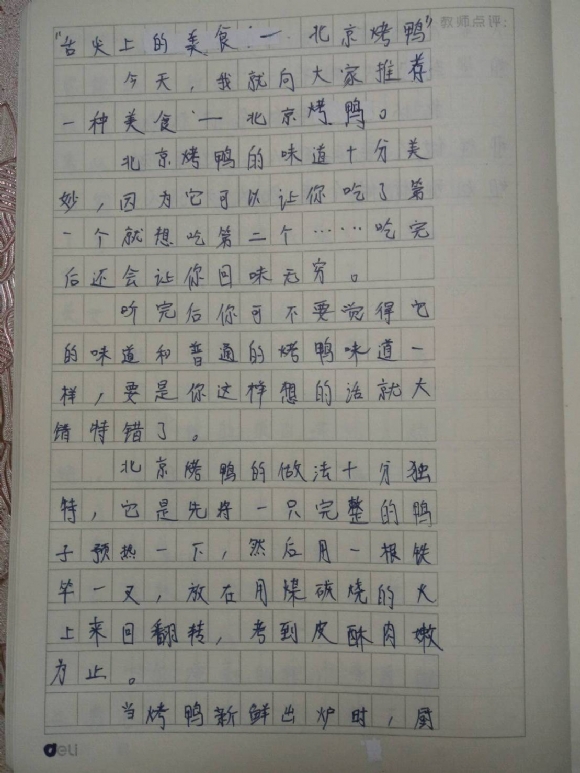 "舌尖上的美食:一 北京烤鸭" 教师点评:
今天,我就向大家推荐
一种美食一北京烤鸭。
北京烤鸭的味道十分美
妙,因为它可以让你吃了第
一个就想吃第二个……吃完
后还会让你回味无穷。
听完后你可不要觉得它
的味道和普通的烤鸭味道一
样,要是你这样想的话就大
错特错了。
北京烤鸭的做法十分独
特,它是先将一只完整的鸭
子预热一下,然后用一根铁
竿一叉,放在用煤碳烧的火
上来回翻转,考到皮酥肉嫩
为止。
当烤鸭新鲜出炉时,厨
deli